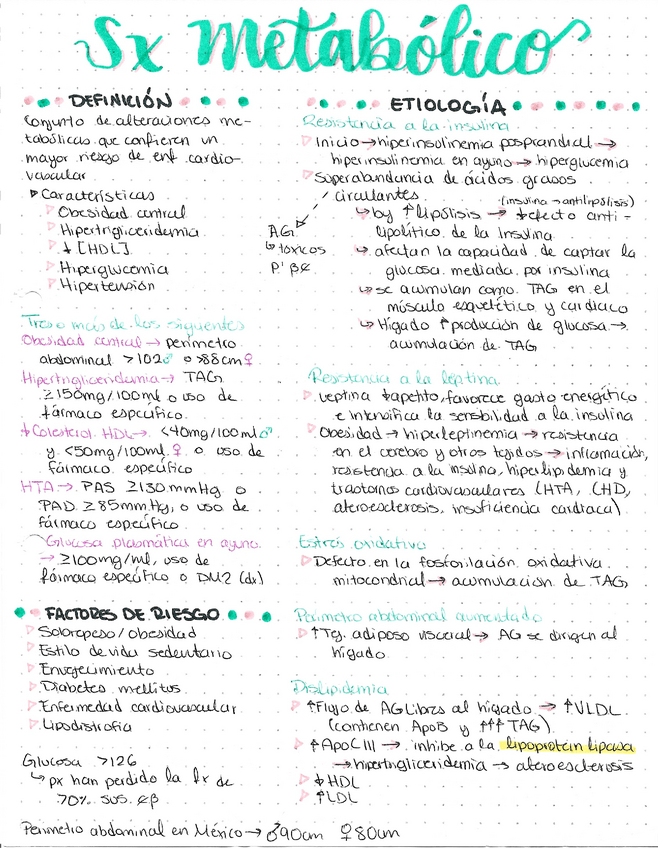 Sx Metabólico
DEFINICIÓN
Conjunto de alteraciones me-
tabólicas que confieren un
mayor riesgo de enf cardio-
vascular
▷ Características
▷ Obesidad central
▷ Hipertrigliceridemia
▷ ↓ [HDL]
▷ Hiperglucemia
▷ Hipertensión
Tres o más de los siguientes
Obesidad central → perímetro
abdominal >102♂ o >88cm♀
Hipertrigliceridemia → TAG
≥150mg/100ml o uso de
fármaco específico.
↓Colesterol HDL → <40mg/100ml♂
y <50mg/100ml ♀ o uso de
fármaco específico
HTA → PAS ≥130mmHg o
PAD ≥85mmHg, o uso de
fármaco específico
Glucosa plasmática en ayuno
→ ≥100mg/ml, uso de
fármaco específico o DM2 (dx)
FACTORES DE RIESGO
▷ Sobrepeso/obesidad
▷ Estilo de vida sedentario
▷ Envejecimiento
▷ Diabetes mellitus
▷ Enfermedad cardiovascular
▷ Lipodistrofia
Glucosa >126
↳ px han perdido la fx de
70% sus cβ
Perímetro abdominal en México → ♂90cm ♀80cm
ETIOLOGÍA
Resistencia a la insulina
▷ Inicio → hiperinsulinemia posprandial →
hiperinsulinemia en ayuno → hiperglucemia
▷ Superabundancia de ácidos grasos
circulantes
(insulina → antilipólisis)
↳ by ↑lipólisis → ↓efecto anti-
lipolítico de la insulina
AG
↳ tóxicos
p' βc
↳ afectan la capacidad de captar la
glucosa mediada por insulina
↳ se acumulan como TAG en el
músculo esquelético y cardiaco
↳ Hígado ↑producción de glucosa →
acumulación de TAG
Resistencia a la leptina
▷ Leptina ↓apetito, favorece gasto energético
e intensifica la sensibilidad a la insulina
▷ Obesidad → hiperleptinemia → resistencia
en el cerebro y otros tejidos → inflamación,
resistencia a la insulina, hiperlipidemia y
trastornos cardiovasculares (HTA, CHD,
ateroesclerosis, insuficiencia cardiaca)
Estrés oxidativo
▷ Defecto en la fosforilación oxidativa
mitocondrial → acumulación de TAG
Perímetro abdominal aumentado
▷ ↑Tej. adiposo visceral → AG se dirigen al
hígado
Dislipidemia
▷ ↑Flujo de AG Libres al hígado → ↑VLDL
(contienen ApoB y ↑↑↑ TAG)
▷ ↑ApoCIII → inhibe a la lipoprotein lipasa
→ hipertrigliceridemia → ateroesclerosis
▷ ↓HDL
▷ ↑LDL